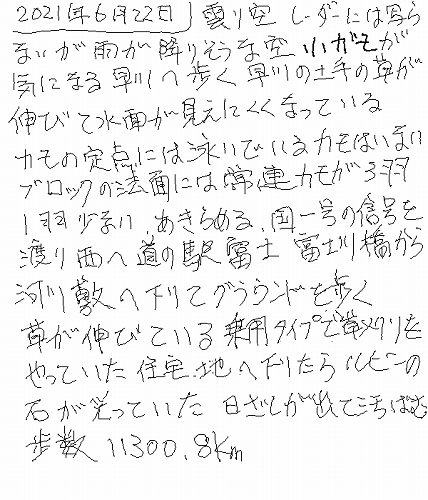 2021年6月22日 曇り空 レーダーには写ら
ないが雨が降りそうな空 小ガモが
気になる早川へ歩く 早川の土手の草が
伸びて水面が見えにくくなっている
カモの定点には泳いでいるカモはいない
ブロックの法面には常連カモが3羽
1羽少ない、あきらめる、国一号の信号を
渡り西へ道の駅富士 富士川橋から
河川敷へ下りてグラウンドを歩く
草が伸びている 乗用タイプで草メリを
やっていた 住宅地へ下りたらルビーの
石が光っていた 日ざしが出て汗ばむ
歩数 11300.8km